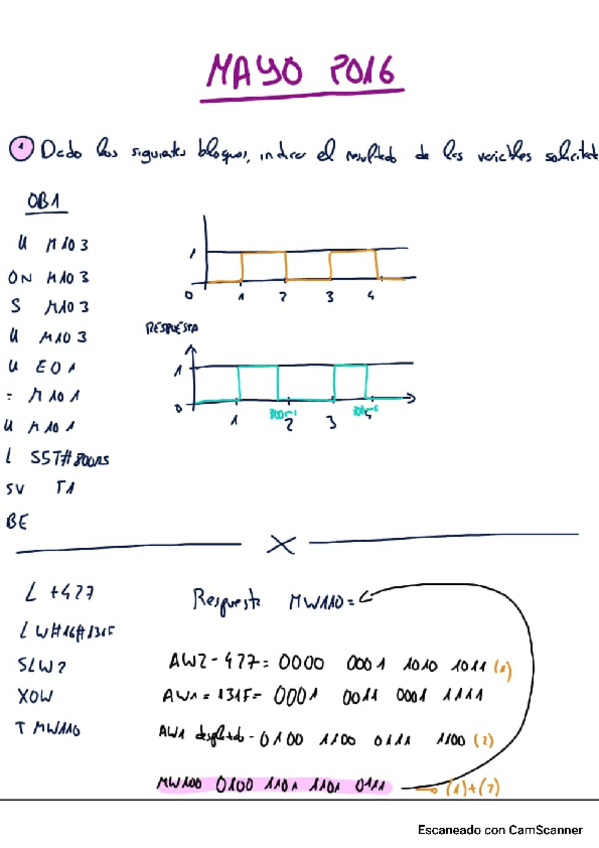 MAYO 2016
1 Dado los siguientes bloques, indicar el resultado de las variables solicitad
OB1
U M10 3
ON M10 3
S M10 3
U M10 3
U E0 1
= M10 1
U M10 1
L S5T#800ms
SV T1
BE
1
0 1 2 3 4
RESPUESTA
1
0 1 2 3
L +427
L W#16#131F
SLW 2
XOW
T MW110
Respuesta MW110 =
AW2 - 427 = 0000 0001 1010 1011 (1)
AW1 = 131F = 0001 0011 0001 1111
AW1 desplztado - 0100 1100 0111 1100 (2)
MW100 0100 1101 1101 0111 → (1)+(2)
Escaneado con CamScanner